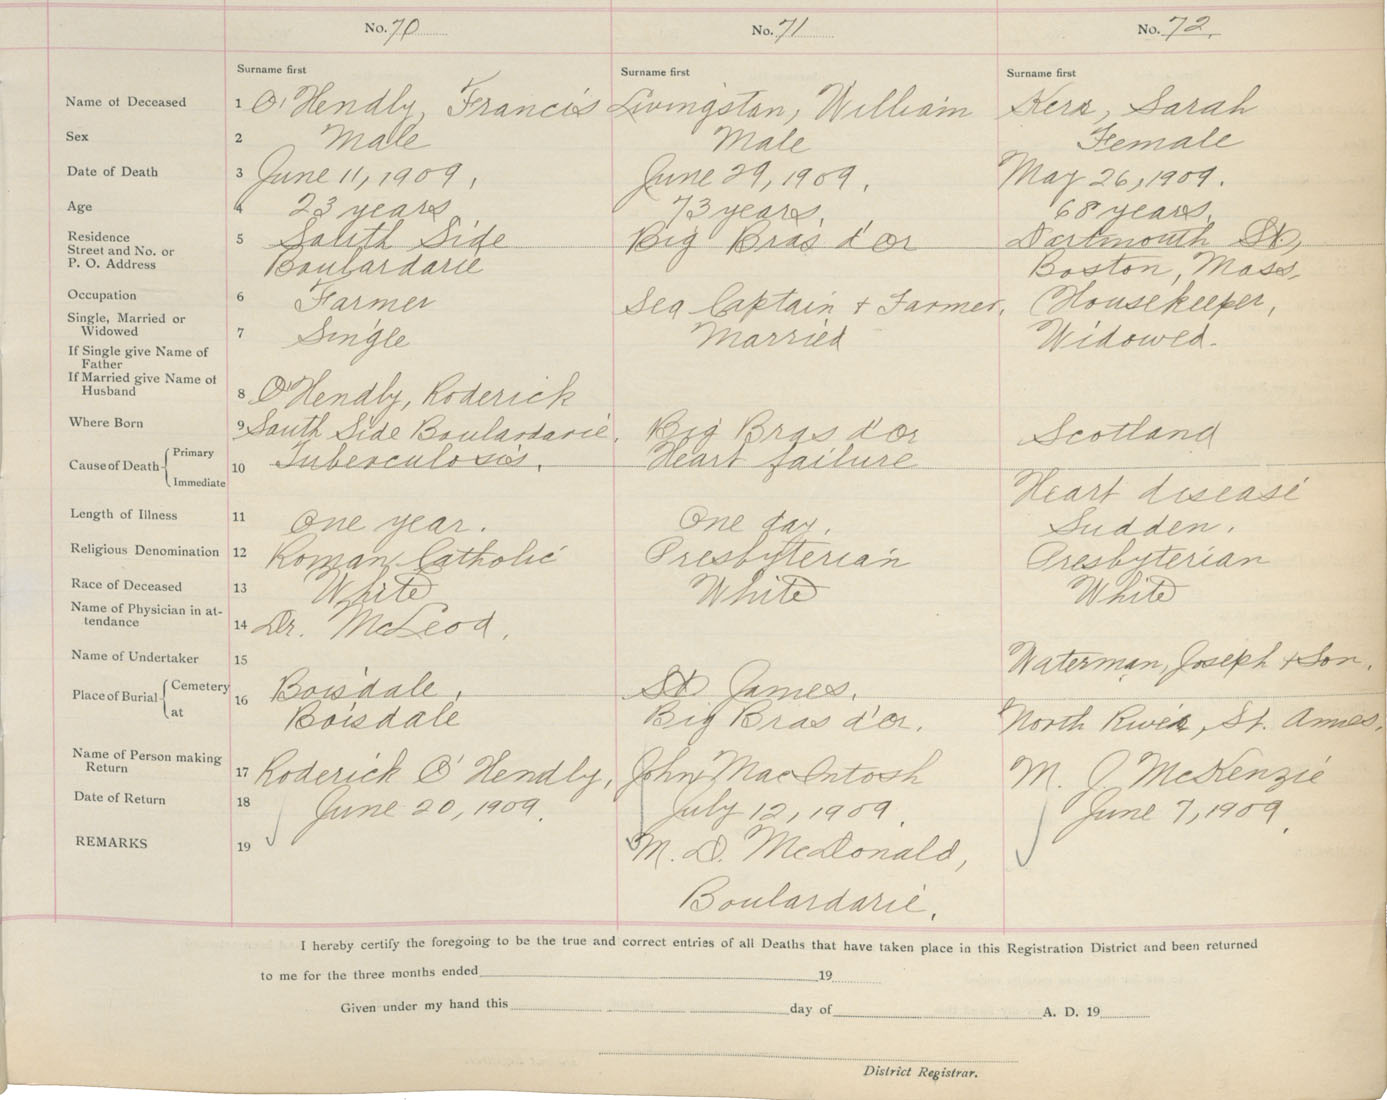 No. 70 No. 71 No. 72.
Surname first Surname first Surname first
Name of Deceased 1 O'Hendly, Francis Livingstan, William Kerr, Sarah
Sex 2 Male Male Female
Date of Death 3 June 11, 1909, June 29, 1909, May 26, 1909.
Age 4 23 years 73 years. 68 years.
Residence
Street and No. or 5 South Side Big Bras d'Or Dartmouth St,
P. O. Address Boulardarie Boston, Mass,
Occupation 6 Farmer Sea Captain + Farmer, Housekeeper,
Single, Married or
Widowed 7 Single Married Widowed.
If Single give Name of
Father
If Married give Name of
Husband 8 O'Hendly, Roderick
Where Born 9 South Side Boulardarie, Big Bras d'Or Scotland
Cause of Death Primary 10 Tuberculosis, Heart failure
Immediate Heart disease
Length of Illness 11 One year. One day. Sudden.
Religious Denomination 12 Roman Catholic Presbyterian Presbyterian
Race of Deceased 13 White White White
Name of Physician in at-
tendance 14 Dr. McLeod,
Name of Undertaker 15 Waterman, Joseph + Son,
Place of Burial Cemetery 16 Boisdale, St James,
at Boisdale Big Bras d'Or, North River, St. Annes,
Name of Person making
Return 17 Roderick O'Hendly, John MacIntosh M. J. McKenzie
Date of Return 18 June 20, 1909, July 12, 1909, June 7, 1909,
REMARKS 19 M. D. McDonald,
Boulardarie,
I hereby certify the foregoing to be the true and correct entries of all Deaths that have taken place in this Registration District and been returned
to me for the three months ended 19
Given under my hand this day of A. D. 19
District Registrar.